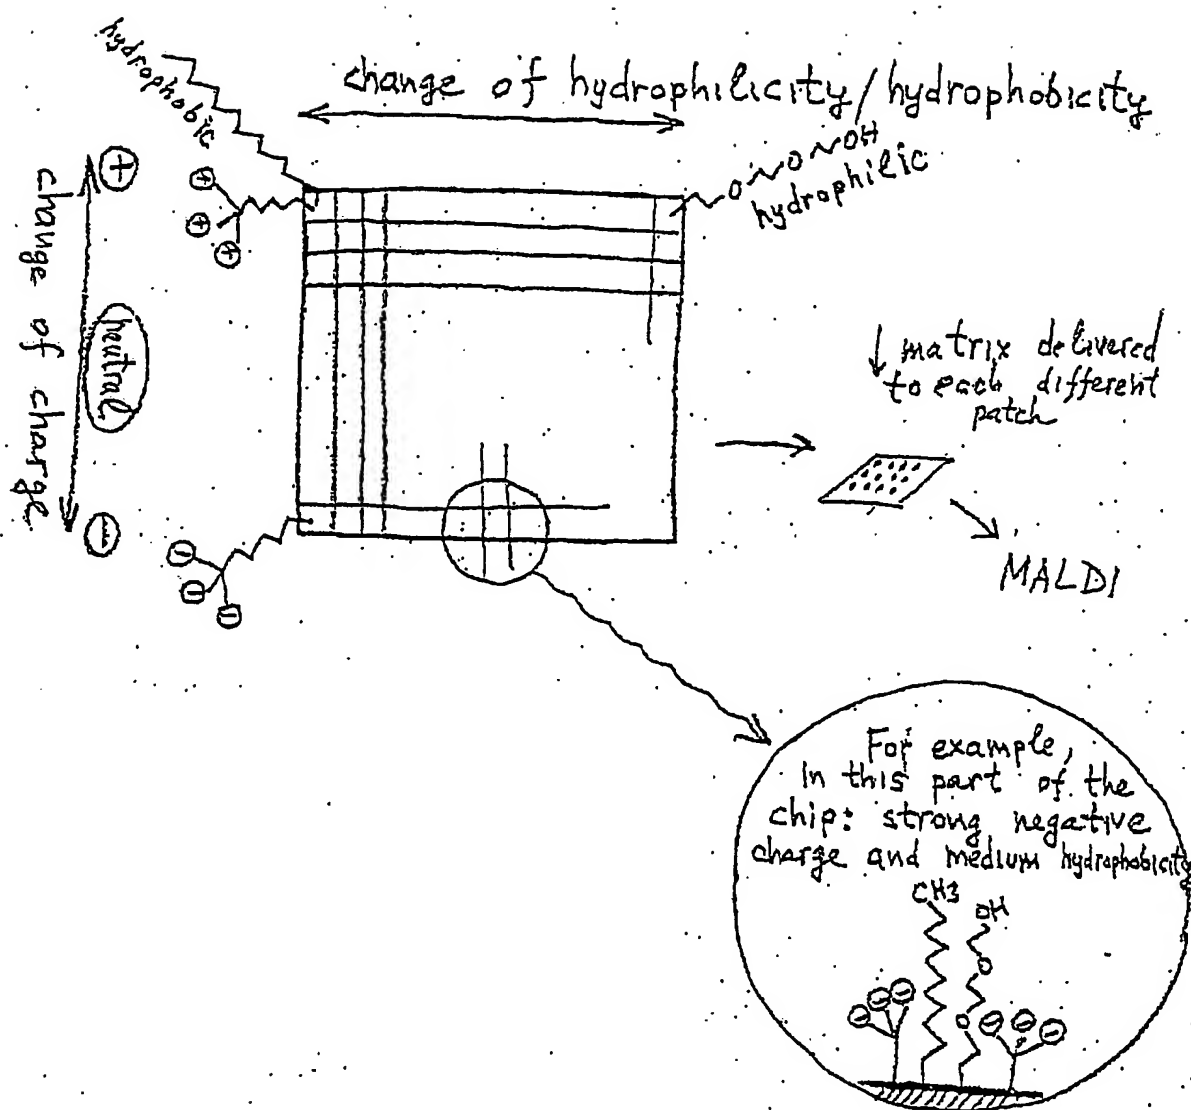 hydrophobic
change of hydrophilicity/hydrophobicity
O O OH
hydrophilic
+
+
+
+
change of charge
neutral
matrix delivered
to each different
patch
−
−
−
−
MALDI
For example,
in this part of the
chip: strong negative
charge and medium hydrophobicity
CH3
OH
O
O
− − −
− − −